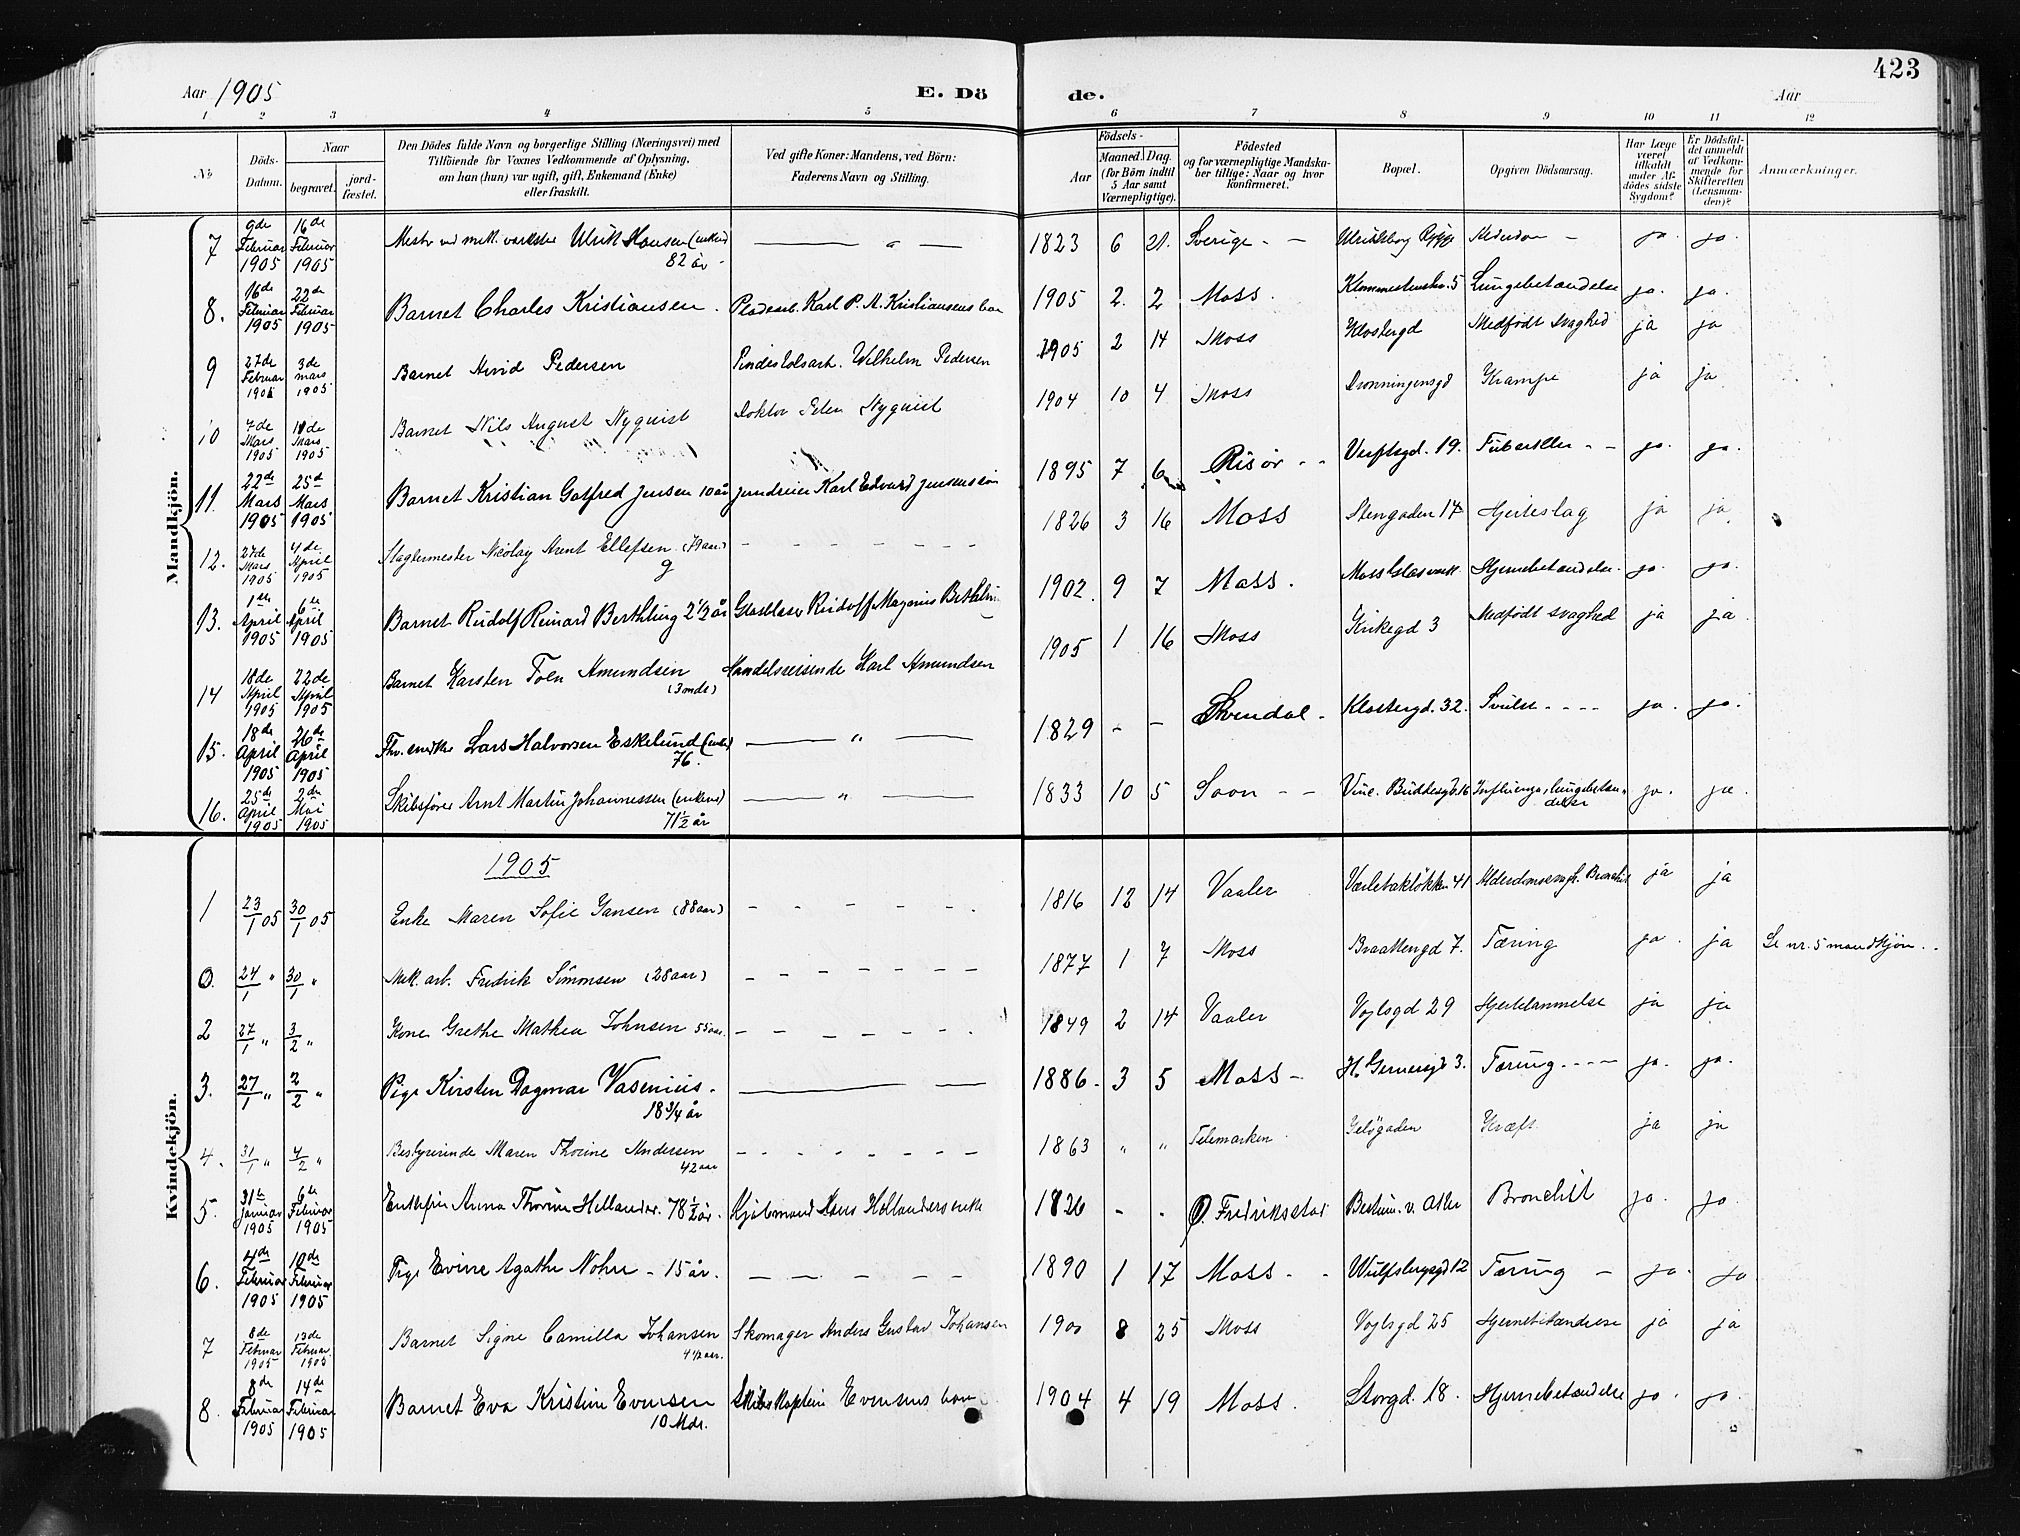 423
Aar 1905
E. Dö de.
Aar
1 2 3 4 5 6 7 8 9 10 11 12
No
Döds-Datum.
Naar
begravet.
jord-fæstet.
Den Dödes fulde Navn og borgerlige Stilling (Næringsvei) med
Tilföiende for Voxnes Vedkommende af Oplysning,
om han (hun) var ugift, gift, Enkemand (Enke)
eller fraskilt.
Ved gifte Koner: Mandens, ved Börn:
Faderens Navn og Stilling.
Födsels-
Aar
Maaned. Dag.
(for Börn indtil
5 Aar samt
Værnepligtige).
Födested
og for værnepligtige Mandska-
ber tillige: Naar og hvor
konfirmeret.
Bopæl.
Opgiven Dödsaarsag.
Har Læge
været
tilkaldt
under Af-
dödes sidste
Sygdom?
Er Dödsfal-
det anmeldt
af Vedkom-
mende for
Skifteretten
(Lensman-
den)?
Anmærkninger.
Mandkjön.
7 9de Februar 1905 16de Februar 1905 Ulrik Hansen (enkem) 82 år 1823 6 21. Sverige Ulriksborg Rygge ja ja
8. 16de Februar 1905 22de Februar 1905 Barnet Charles Kristiansen. Pladearb. Karl P. A. Kristiansens barn 1905 2. 2 Moss. 5 Lungebetændelse ja. ja.
9 27de Februar 1905 3de mars 1905 Barnet Arvid Pedersen Wilhelm Pedersen 1905 2 14 Moss Klostergd Medfödt svaghed ja ja
10 7de Mars 1905 10de Mars 1905 Barnet Nils August Nyquist Doktor Peter Nyquist 1904 10 4 Moss Dronningensgd Krampe ja ja
11. 22de Mars 1905 25de Mars 1905 Barnet Kristian Gotfred Jensen 10 år Karl Edvard Jensens sön 1895 7 6 Risör Verftsgd. 19. Tuberkler ja. ja.
12. 27de Mars 1905 4de April 1905 Slagtermester Nicolay Arent Ellefsen (79 aar) g 1826 3 16 Moss Stengaden 17 Hjerteslag ja ja
13. 1ste April 1905 6te April 1905 Barnet Rudolf Reinard Berthling 2 1/2 år Glasblæser Rudolf Magnius Berthling 1902. 9 7 Moss. Moss Glasværk Hjernebetændelse. ja. ja.
14 18de April 1905 22de April 1905 Barnet Karsten Amundsen (3 mdr) Handelsreisende Karl Amundsen 1905 1 16 Moss Kirkegd 3 Medfödt svaghed ja ja
15. 18de April 1905 26de April 1905 Fhv. smed Lars Halvorsen Eskelund (enkem) 76. 1829 - - Svindal. Klostergd. 32. Svulst ja. ja.
16. 25de April 1905 2den Mai 1905 Skibsförer Arnt Martin Johannessen (enkem) 71 1/2 år 1833 10 5 Soon Vinc. Buddesgd. 16 Influenza, lungebetændelse ja. ja.
Kvindekjön.
1905
1 23/1 05 30/1 05 Enke Maren Sofie Jansen (88 aar) 1816 12 14 Vaaler 41 Alderdomssvagh. Bronchit ja ja
0. 24/1 " 30/1 " Mek. arb. Fredrik Simonsen (28 aar) 1877 1 7 Moss Braattengd 7. Tæring ja. ja Se nr. 5 mandkjön.
2 27/1 " 3/2 " Kone Grethe Mathea Johnsen 55 aar. 1849 2 14 Vaaler Voglsgd 29 Hjertelammelse ja ja
3. 27/1 " 2/2 " Pige Kirsten Dagmar Vasenius. 18 3/4 år 1886. 3 5 Moss H. Gernersgd 3. Tæring ja. ja.
4. 31/1 " 4/2 " Bestyrerinde Maren Thorine Andersen 42 aar 1863 " " Telemarken Gelögaden Kræft ja ja
5. 31te Januar 1905 6te Februar 1905 Enkefru Anna Thorine Hellander. 78 1/2 år. Kjöbmand Hans Hellanders enke 1826 - - Ø. Fredriksstad Bestum v. Aker Bronchit ja. ja.
6. 4de Februar 1905 10de Februar 1905 Pige Evine Agathe Nohre - 15 år. 1890 1 17 Moss Wulfsbergsgd 12 Tæring ja. ja
7 8de Februar 1905 13de Februar 1905 Barnet Signe Camilla Johansen 4 1/2 aar. Skomager Anders Gustav Johansen 1900 8 25 Moss Voglsgd 25 Hjernebetændelse ja ja
8. 8de Februar 1905 14de Februar 1905 Barnet Eva Kristine Evensen 10 Mdr. Skibskaptein Evensens barn 1904 4 19 Moss. Storgd. 18. Hjernebetændelse ja. ja.